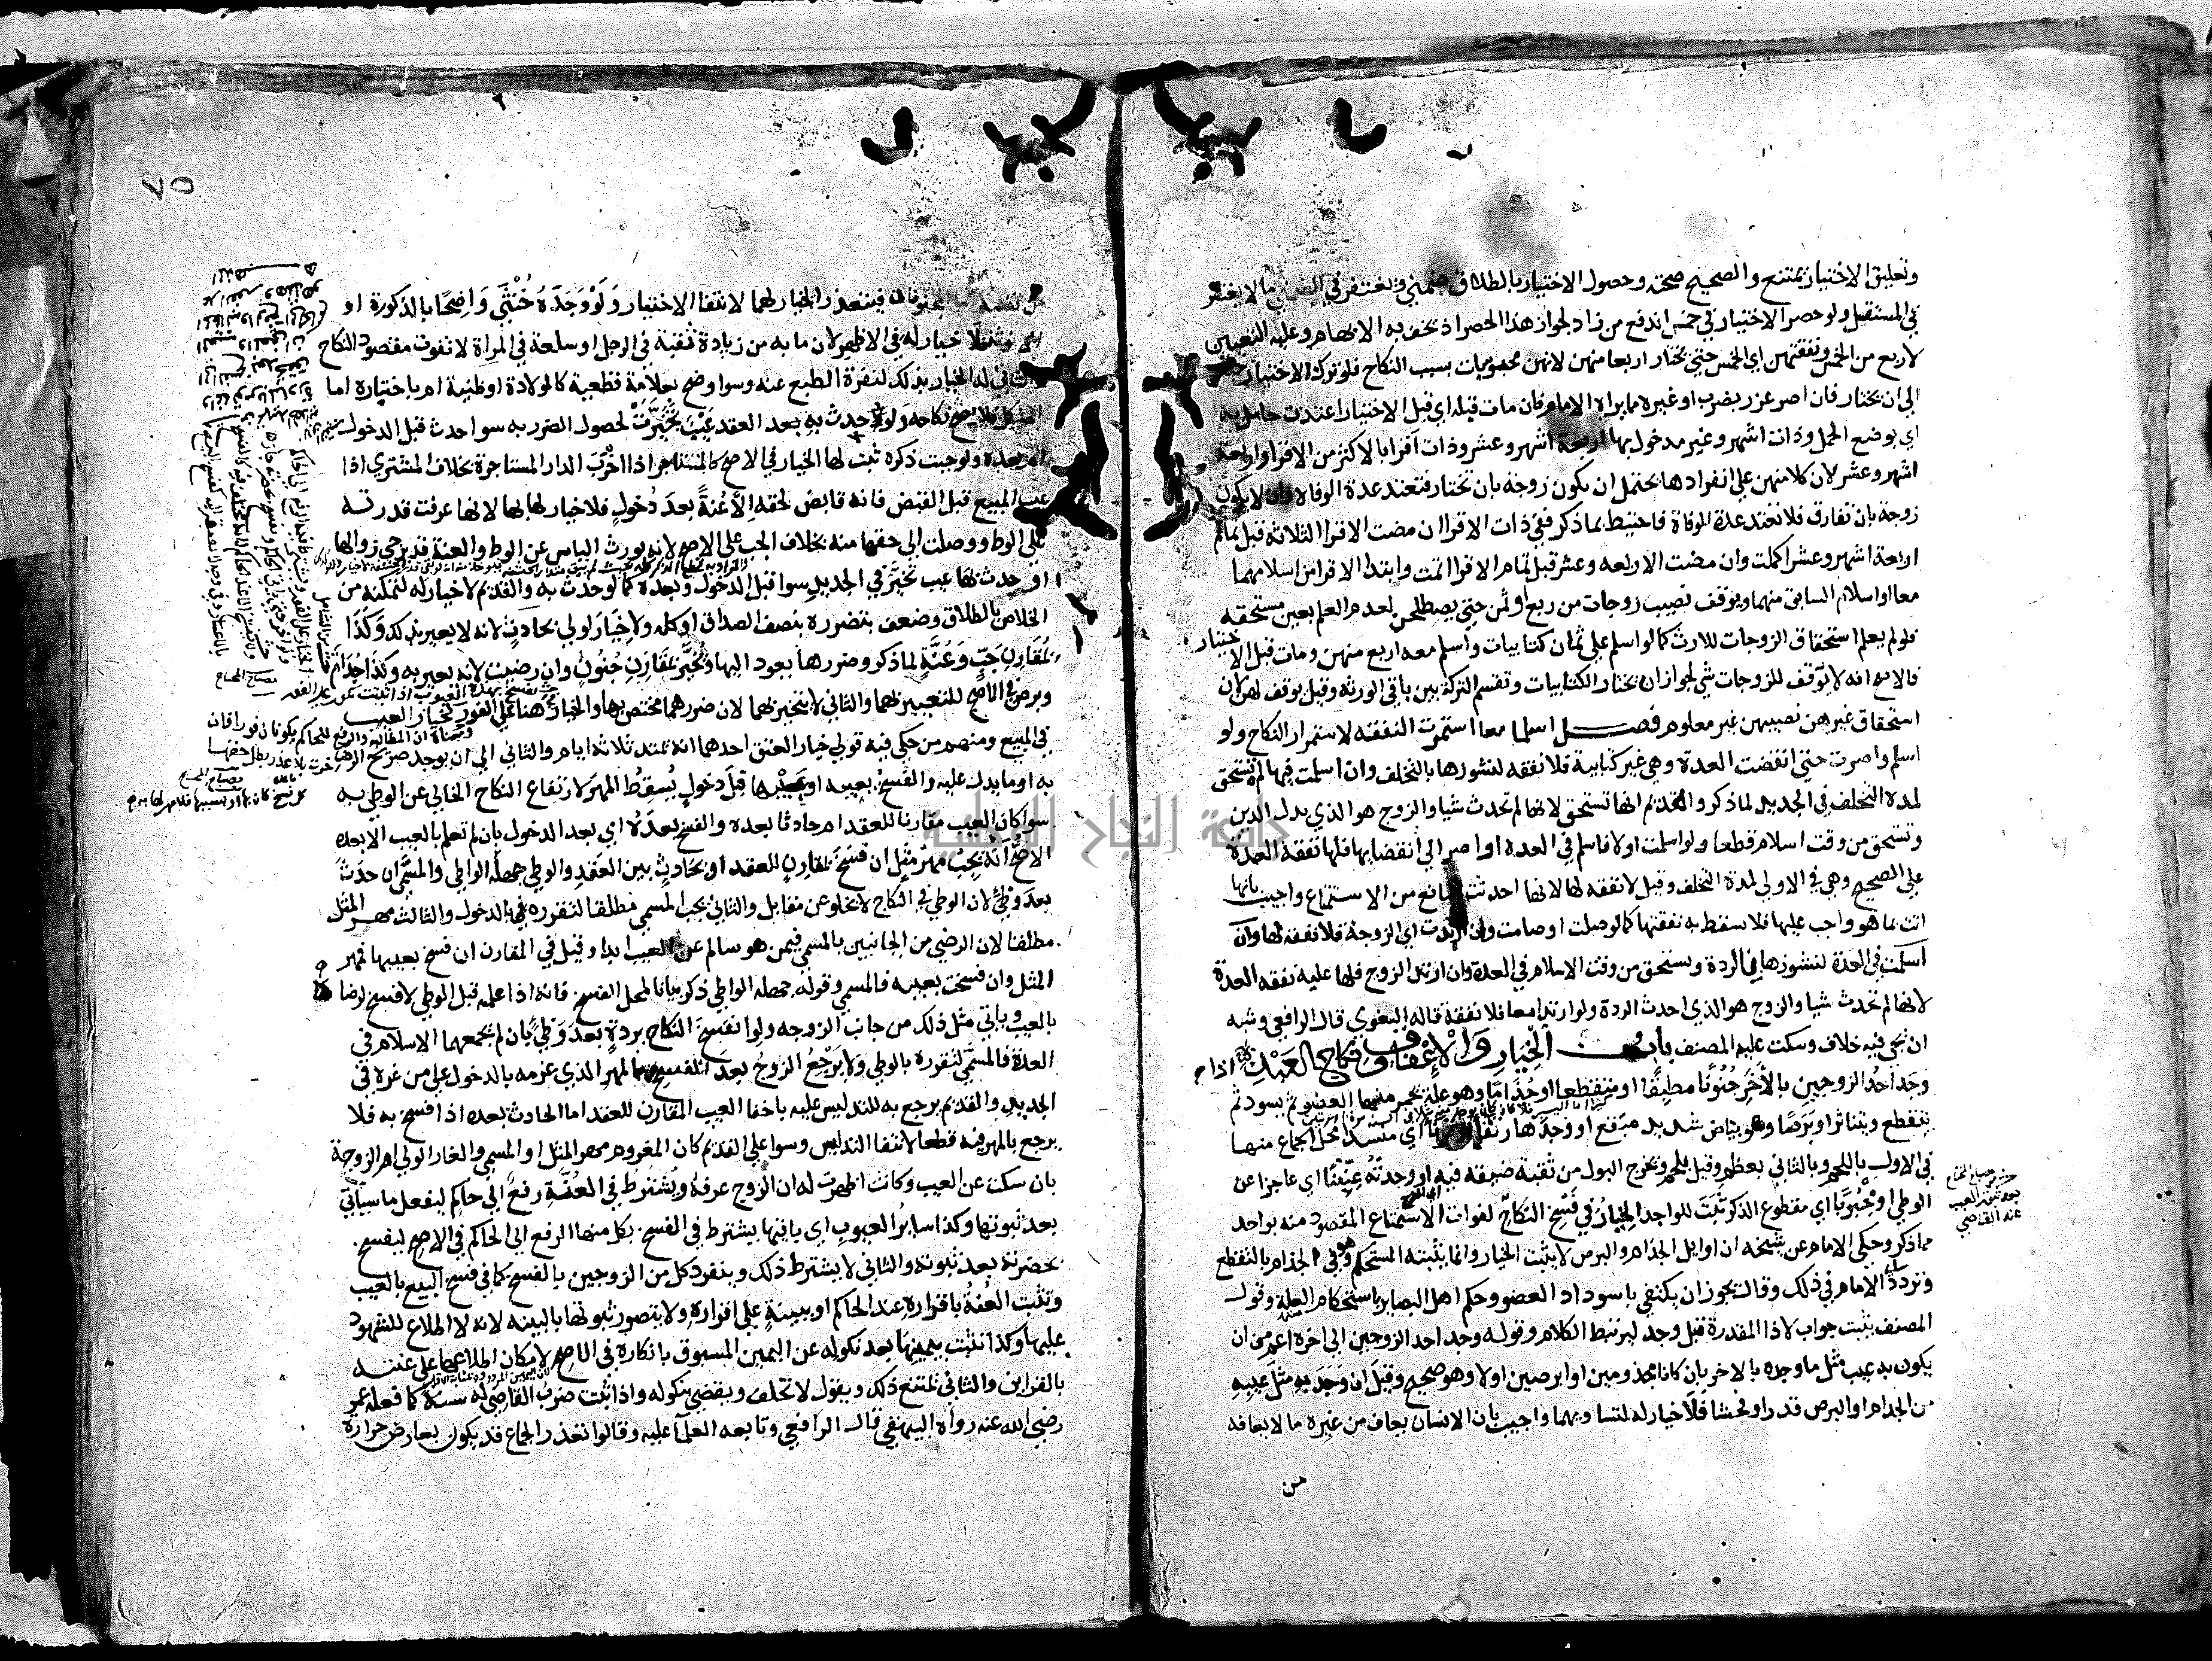 وتعليق الاختيار ممتنع والصحيح صحته وحصول الاختيار بالطلاق ضمني ويغتفر في الضمني ما لا يغتفر
في المستقبل ولو حصر الاختيار في خمس اندفع من زاد لجواز هذا الحصر اذ يخف به الابهام وعليه التعيين
لاربع من الخمس ونفقتهن اي الخمس حتى يختار اربعا منهن لانهن محبوسات بسبب النكاح فلو ترك الاختيار حبس
الى ان يختار فان اصر عزر بضرب او غيره مما يراه الامام فان مات قبله اي قبل الاختيار اعتدت حامل به
اي بوضع الحمل وذات اشهر وغير مدخول بها اربعة اشهر وعشر وذات اقرا بالاكثر من الاقرا واربعة
اشهر وعشر لان كلا منهن على انفرادها يحتمل ان يكون زوجة بان تختار فتعتد عدة الوفاة وان لا يكون
زوجة بان تفارق فلا تعتد عدة الوفاة فاحتيط بما ذكر ففي ذات الاقرا ان مضت الاقرا الثلاثة قبل تمام
اربعة اشهر وعشر اكملت وان مضت الاربعه وعشر قبل تمام الاقرا اتمت وابتدا الاقرا من اسلامهما
معا او اسلام السابق منهما ويوقف نصيب زوجات من ربع او ثمن حتى يصطلحن لعدم العلم بعين مستحقه
فلو لم يعلم استحقاق الزوجات للارث كما لو اسلم على ثمان كتابيات واسلم معه اربع منهن ومات قبل الاختيار
فالاصح انه لا توقف للزوجات شي لجواز ان يختار الكتابيات وتقسم التركة بين باقي الورثه وقيل يوقف لهن لان
استحقاق غيرهن نصيبهن غير معلوم فصل اسلما معا استمرت النفقه لاستمرار النكاح ولو
اسلم واصرت حتى انقضت العدة وهي غير كتابية فلا نفقه لنشوزها بالتخلف وان اسلمت فيها لم تستحق
لمدة التخلف في الجديد لما ذكر والقديم انها تستحق لانها لم تحدث شيا والزوج هو الذي بدل الدين
وتستحق من وقت اسلام قطعا ولو اسلمت اولا فاسلم في العدة او اصر الى انقضايها فلها نفقة العدة
على الصحيح وهي في الاولى لمدة التخلف وقيل لا نفقه لها لانها احدثت المانع من الاستمتاع واجيب بانها
اتت بما هو واجب عليها فلا سقط به نفقتها كما لو صلت او صامت وان ارتدت اي الزوجة فلا نفقه لها وان
اسلمت في العدة لنشوزها في الردة وتستحق من وقت الاسلام في العدة وان ارتد الزوج فلها عليه نفقه العدة
لانها لم تحدث شيا والزوج هو الذي احدث الردة ولو ارتدا معا فلا نفقة قاله البغوي قال الرافعي وشبه
ان يجي فيه خلاف وسكت عليه المصنف باب الخيار والاعفاف ونكاح العبد اذا
وجد احد الزوجين بالاخر جنونا مطبقا او متقطعا او جذاما وهو علة يحمر منها العضو ثم يسود ثم
يتقطع ويتناثر او برصا وهو بياض شديد مبقع او وجدها رتقا او قرنا اي منسدا محل الجماع منها
في الاول بالللحم وبالثاني بعظم وقيل بلحم ويخرج البول من ثقبة ضيقه فيه او وجدته عنينا اي عاجزا عن
الوطي او مجبوبا اي مقطوع الذكر ثبت للواجد الخيار في فسخ النكاح لفوات الاستمتاع المقصود منه بواحد
مما ذكر وحكى الامام عن شيخه ان اوايل الجذام والبرص لا يثبت الخيار وانما يثبته المستحكم وهو في الجذام بالتقطع
وتردد الامام في ذلك وقال يجوز ان يكتفى باسوداد العضو وحكم اهل البصاير باستحكام العلة وقول
المصنف يثبت جواب لاذا المقدرة قبل وجد ليرتبط الكلام وقوله وجد احد الزوجين الى اخره اعم من ان
يكون به عيب مثل ما وجده بالاخر بان كانا مجذومين او ابرصين اولا وهو صحيح وقيل ان وجد به مثل عيبه
من الجذام او البرص قدرا وفحشا فلا خيار له لتساويهما واجيب بان الانسان يعاف من غيره ما لا يعافه
من
عند القاضي
٧٥
فيتعذر الخيار لهما لانتفا الاختيار ولو وجده خنثى واضحا بالذكورة او
فلا خيار له في الاظهر لان ما به من زيادة ثقبة في الرجل او سلعة في المراة لا تفوت مقصود النكاح
والثاني له الخيار بذلك لنفرة الطبع عنه وسوا وضح بعلامة قطعية كالولادة او ظنية ام باختياره اما
المشكل فلا يصح نكاحه ولو حدث به بعد العقد عيب تخيرت لحصول الضرر به سوا حدث قبل الدخول
ام بعده ولو جبت ذكره ثبت لها الخيار في الاصح كالمستاجر اذا خرب الدار المستاجرة بخلاف المشتري اذا
عيب المبيع قبل القبض فانه قابض لحقه الا عنة بعد دخول فلا خيار لها بها لانها عرفت قدرته
على الوطو ووصلت الى حقها منه بخلاف الجب على الاصح لانه يورث الياس عن الوط والعنة قد يرجى زوالها
او حدث بها عيب تخير في الجديد سوا قبل الدخول وبعده كما لو حدث به والقديم لا خيار له لتمكنه من
الخلاص بالطلاق وضعف بتضرره بنصف الصداق او كله ولا خيار لولي بحادث لانه لا يعير بذلك وكذا
بمقارن جب وعنة لما ذكر وضررها يعود اليها ويتخير بمقارن جنون وان رضيت لانه يعير به وكذا جذام
وبرص في الاصح للتعيير بهما والثاني لا يتخير بهما لان ضررهما مختص بها والخيار هنا على الفور كخيار العيب
في المبيع ومنهم من حكى فيه قولي خيار العتق احدهما انه تمتد ثلاثة ايام والثاني الى ان يوجد صريح الرضا
به او ما يدل عليه والفسخ بعيبه او بعيبها قبل دخول يسقط المهر لارتفاع النكاح الخالي عن الوطي به
سوا كان العيب مقارنا للعقد ام حادثا بعده والفسخ بعده اي بعد الدخول بان لم تعلم بالعيب الا بعده
الاصح انه يجب مهر مثل ان فسخ بمقارن للعقد او بحادث بين العقد والوطي جهله الواطي والمسمى ان حدث
بعد وطي لان الوطي في النكاح لا يخلو عن مقابل والثاني يجب المسمى مطلقا لتقرره بالدخول والثالث مهر المثل
مطلقا لان الرضى من الجانبين بالمسمى فيمن هو سالم عن العيب ابدا وقيل في المقارن ان فسخ بعيبها فمهر
المثل وان فسخت بعيبه فالمسمى وقوله جهله الواطي ذكر بيانا لمحل الفسخ فانه اذا علمه قبل الوطي لا فسخ لرضاه
بالعيب وياتي مثل ذلك من جانب الزوجه ولو انفسخ النكاح بردة بعد وطي بان لم يجمعهما الاسلام في
العدة فالمسمى لتقرره بالوطي ولا يرجع الزوج بعد الفسخ بالمهر الذي غرمه بالدخول على من غره في
الجديد والقديم يرجع به للتدليس عليه باخفا العيب المقارن للعقد اما الحادث بعده اذا فسخ به فلا
يرجع بالمهر فيه قطعا لانتفا التدليس وسوا على القديم كان المغروم مهر المثل او المسمى والغار الولي ام الزوجة
بان سكت عن العيب وكانت اظهرت له ان الزوج عرفه ويشترط في العنة رفع الى حاكم ليفعل ما سياتي
بعد ثبوتها وكذا ساير العيوب اي باقيها يشترط في الفسخ بكل منها الرفع الى الحاكم في الاصح ليفسخ
بحضرته بعد ثبوته والثاني لا يشترط ذلك وينفرد كل من الزوجين بالفسخ كما في فسخ البيع بالعيب
وتثبت العنة باقراره عند الحاكم او ببينة على اقراره ولا يتصور ثبوتها بالبينه لانه لا اطلاع للشهود
عليها وكذا تثبت بيمينها بعد نكوله عن اليمين المسبوق بانكاره في الاصح لامكان اطلاعها على عنته
بالقراين والثاني يمتنع ذلك ويقول لا تحلف ويقضى بنكوله واذا ثبتت ضرب القاضي له سنة كما فعله عمر
رضي الله عنه رواه البيهقي قال الرافعي وتابعه العلما عليه وقالوا تعذر الجماع قد يكون بعارض حرارة
جامعة النجاح الوطنية